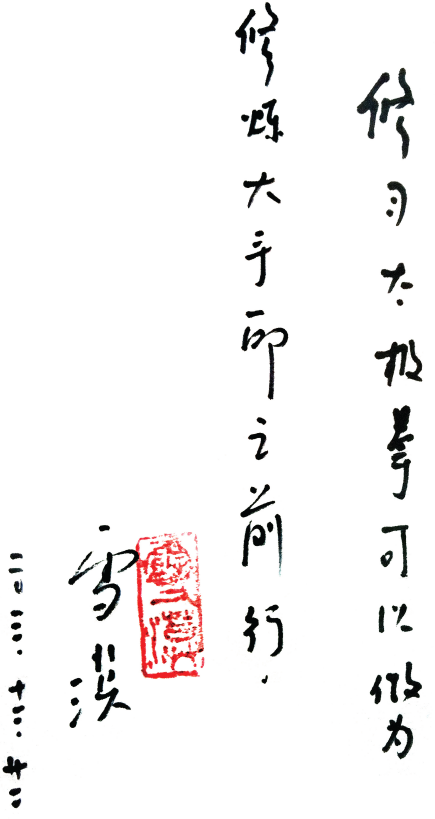 修习太极拳可以做为
修炼大手印之前行.
雪漠
二〇一三.十二.廿二
雪漠